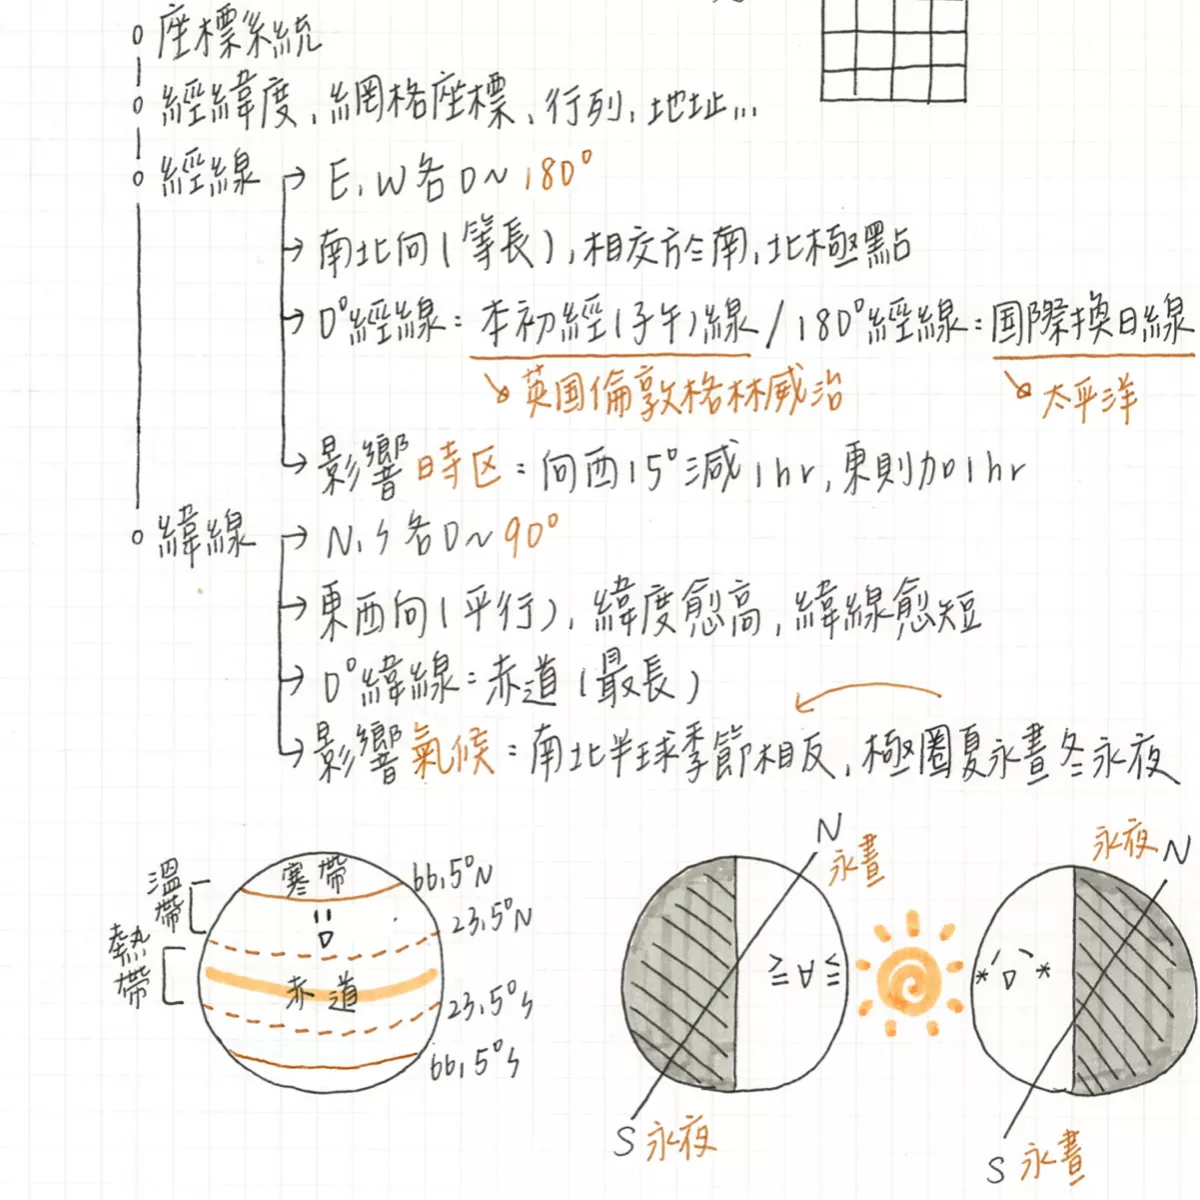 座標系統
經緯度、網格座標、行列、地址...
經線 → E、W各0~180°
→ 南北向(等長),相交於南、北極點
→ 0°經線:本初經(子午)線/180°經線:国際換日線
英国倫敦格林威治 太平洋
→ 影響時区:向西15°減1hr,東則加1hr
緯線 → N、S各0~90°
→ 東西向(平行),緯度愈高,緯線愈短
→ 0°緯線:赤道(最長)
→ 影響氣候:南北半球季節相反,極圈夏永晝冬永夜
溫帶
熱帶
寒帶
赤道
66.5°N
23.5°N
23.5°S
66.5°S
N 永晝
S 永夜
永夜 N
S 永晝